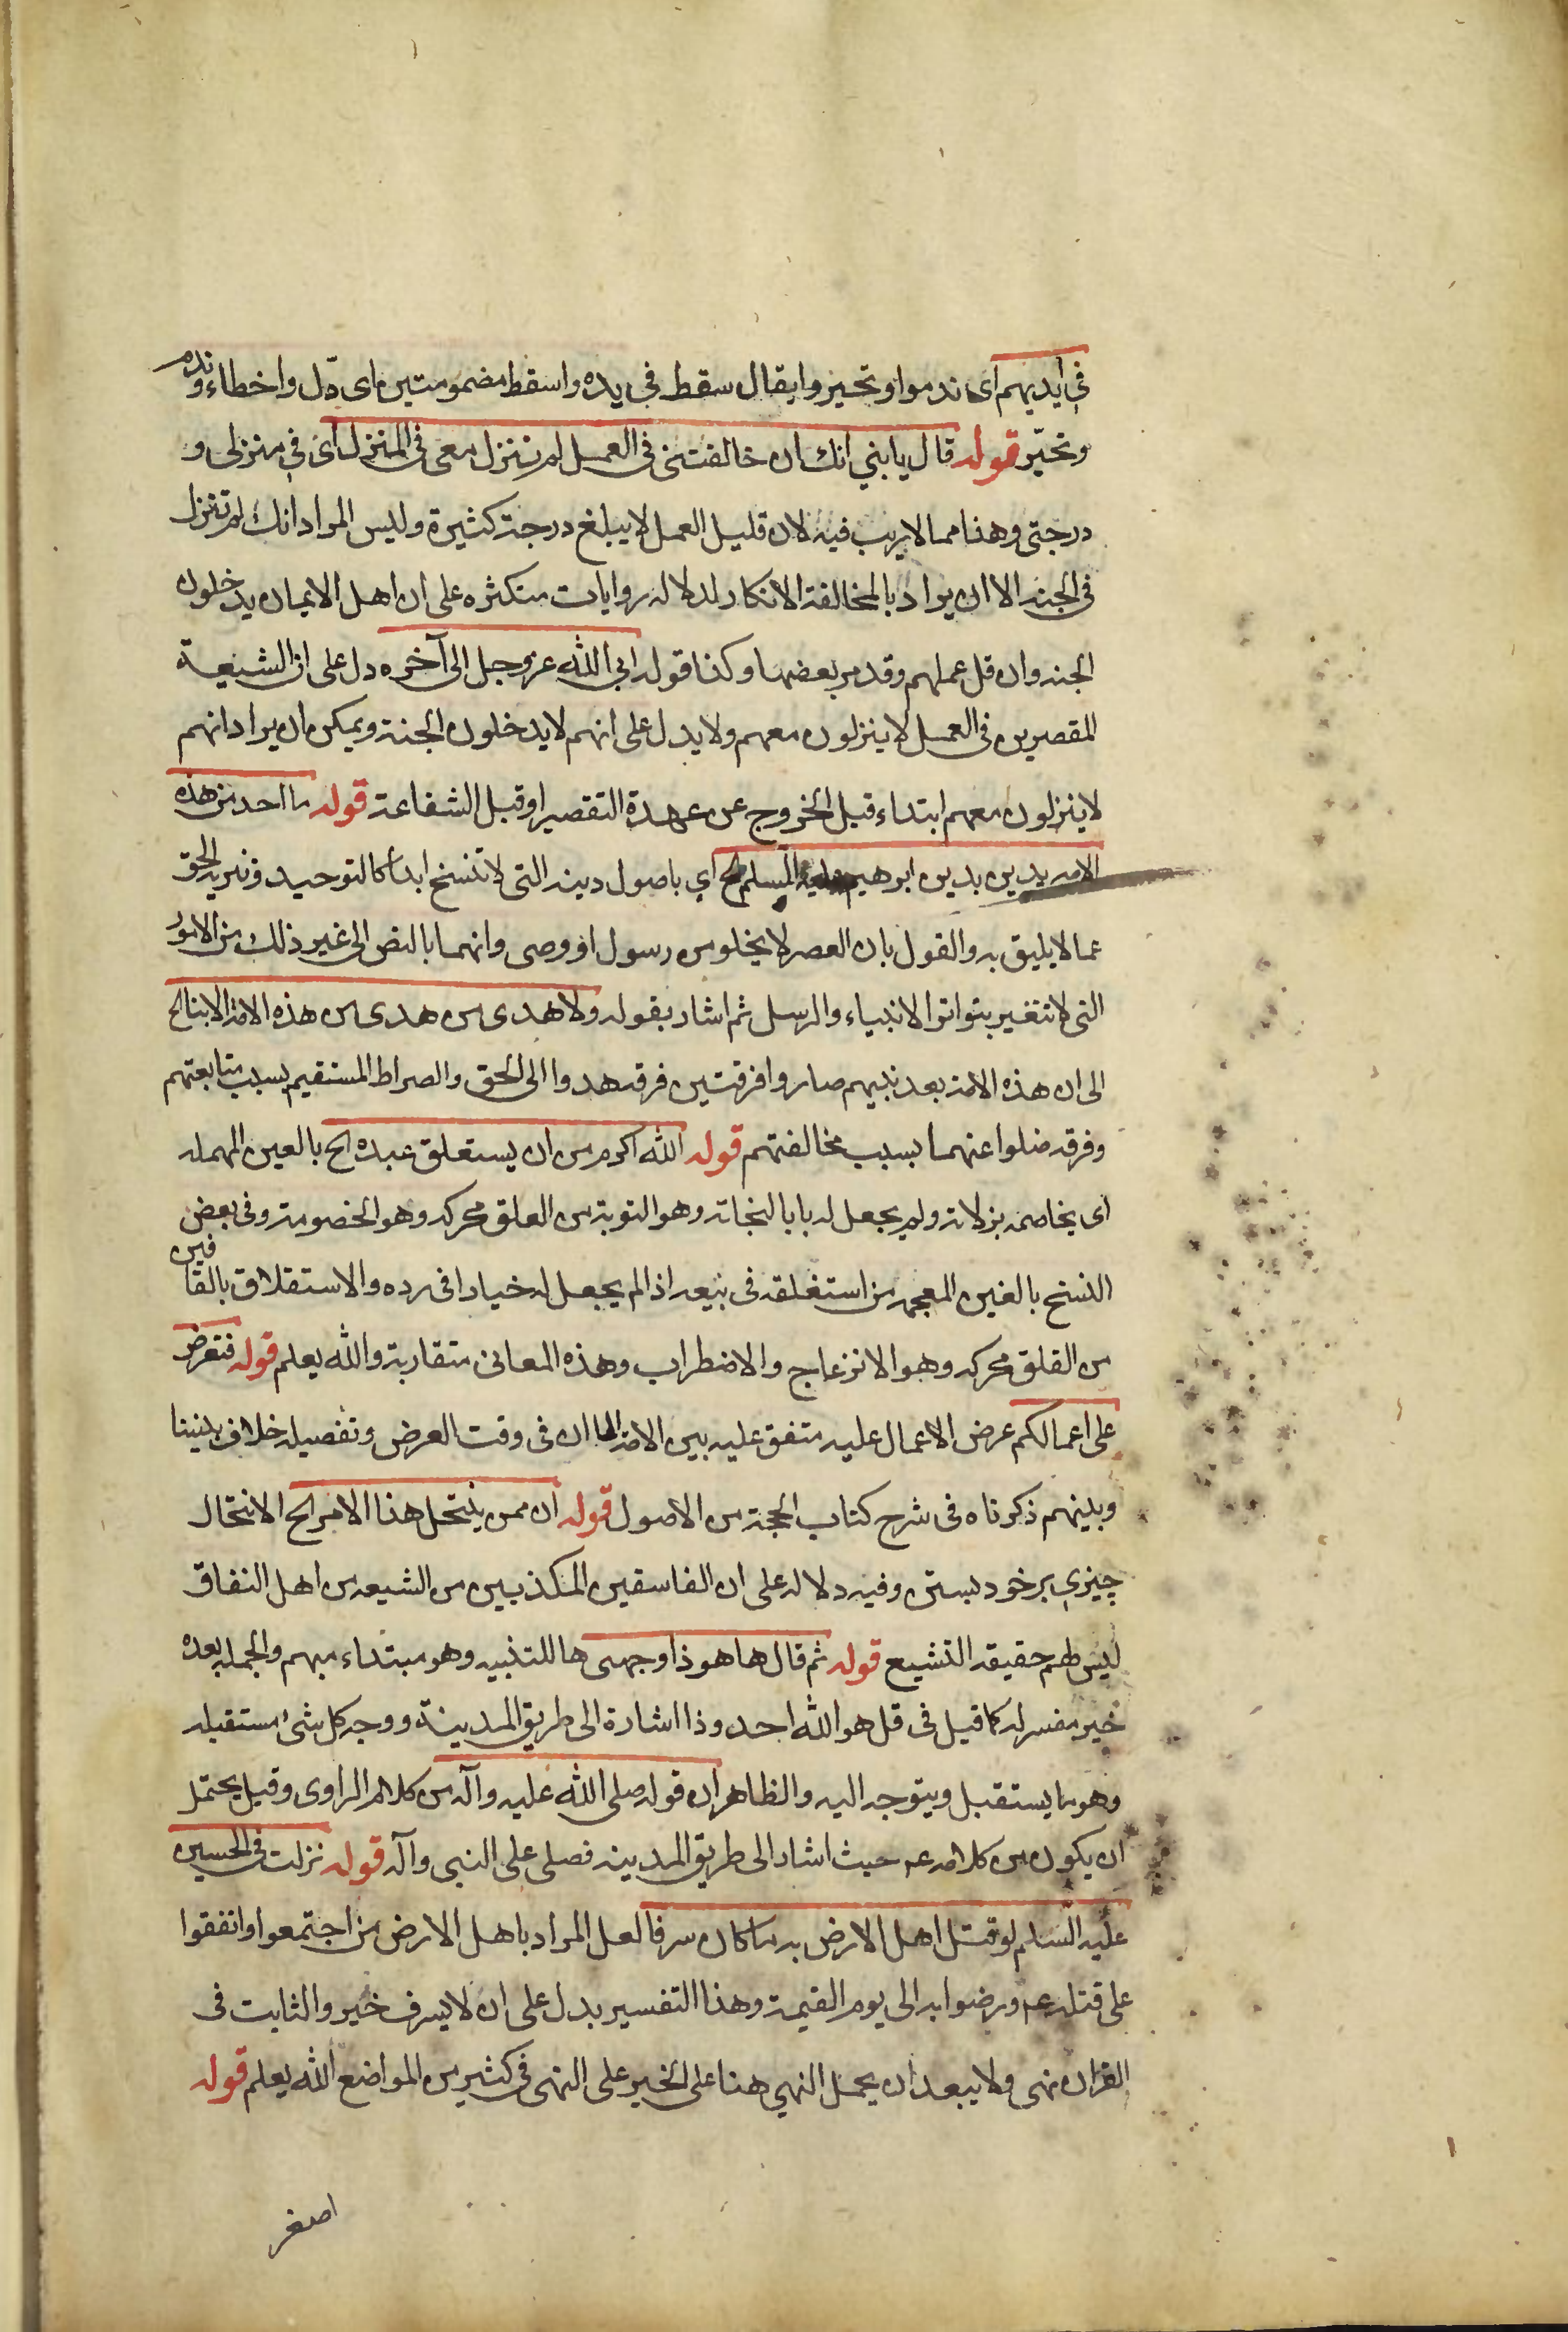 في ايديهم اى ندموا وتحيزوا يقال سقط في يده واسقط مضمومتين اى ذل واخطاء وندم
وتحيّر قوله قال يا بني انك ان خالفتني في العمل لم تنزل معي في المنزل اى في منزلى و
درجتى وهذا مما لا يريب فيه لان قليل العمل لا يبلغ درجة كثيرة وليس المراد انك لم تنزل
في الجنه الا ان يراد بالمخالفة الانكار لدلاله روايات متكثره على ان اهل الايمان يدخلون
الجنه وان قل عملهم وقد مر بعضها وكذا قوله ابى الله عز وجل الى آخره دل على ان الشيعة
المقصرين في العمل لا ينزلون معهم ولا يدل على انهم لا يدخلون الجنة ويمكن ان يراد انهم
لا ينزلون معهم ابتداء قبل الخروج عن عهدة التقصير او قبل الشفاعة قوله ما احد من هذه
الامه يدين بدين ابرهيم عليه السلم الخ اي باصول دينه التى لا تنسخ ابدا كالتوحيد وتنزيه الحق
عما لا يليق به والقول بان العصر لا يخلو من رسول او وصى وانهما بالنص الى غير ذلك من الامور
التى لا تتغير بتواتر الانبياء والرسل ثم اشار بقوله ولا هدى من هدى من هذه الامة الا بنا الخ
الى ان هذه الامة بعد نبيهم صاروا فرقتين فرقه هدوا الى الحق والصراط المستقيم بسبب متابعتهم
وفرقه ضلوا عنهما بسبب مخالفتهم قوله الله اكرم من ان يستعلق عبده الخ بالعين المهمله
اى يخاصمه بزلاته ولم يجعل له بابا لنجاته وهو التوبة من العلق محركه وهو الخصومة وفى بعض
النسخ بالغين المعجمه من استغلقه فى بيعه اذا لم يجعل له خيارا فى رده والاستقلاق بالقافين
من القلق محركه وهو الانزعاج والاضطراب وهذه المعانى متقاربة والله يعلم قوله فتعرض
على اعمالكم عرض الاعمال عليه متفق عليه بين الامة الا ان فى وقت العرض وتفصيله خلاف بيننا
وبينهم ذكرناه فى شرح كتاب الحجة من الاصول قوله ان ممن ينتحل هذا الامر الخ الانتحال
چيزي بر خود بستن وفيه دلاله على ان الفاسقين المكذبين من الشيعه من اهل النفاق
ليس لهم حقيقه التشيع قوله ثم قال ها هو ذا وجهى ها للتنبيه وهو مبتداء مبهم والجمله بعده
خبر مفسر له كما قيل فى قل هو الله احد وذا اشارة الى طريق المدينة ووجه كل شئ مستقبله
وهو ما يستقبل ويتوجه اليه والظاهر ان قوله صلى الله عليه وآله من كلام الراوى وقيل يحتمل
ان يكون من كلامه عم حيث اشار الى طريق المدينه فصلى على النبى وآله قوله نزلت فى الحسين
عليه السلم لو قتل اهل الارض به ما كان سرفا لعل المراد باهل الارض من اجتمعوا واتفقوا
على قتله عم ورضوا به الى يوم القيمة وهذا التفسير يدل على ان لا يسرف خبر والثابت فى
القران نهى ولا يبعد ان يحمل النهي هنا على الخبر على النهى فى كثير من المواضع الله يعلم قوله
اصغر